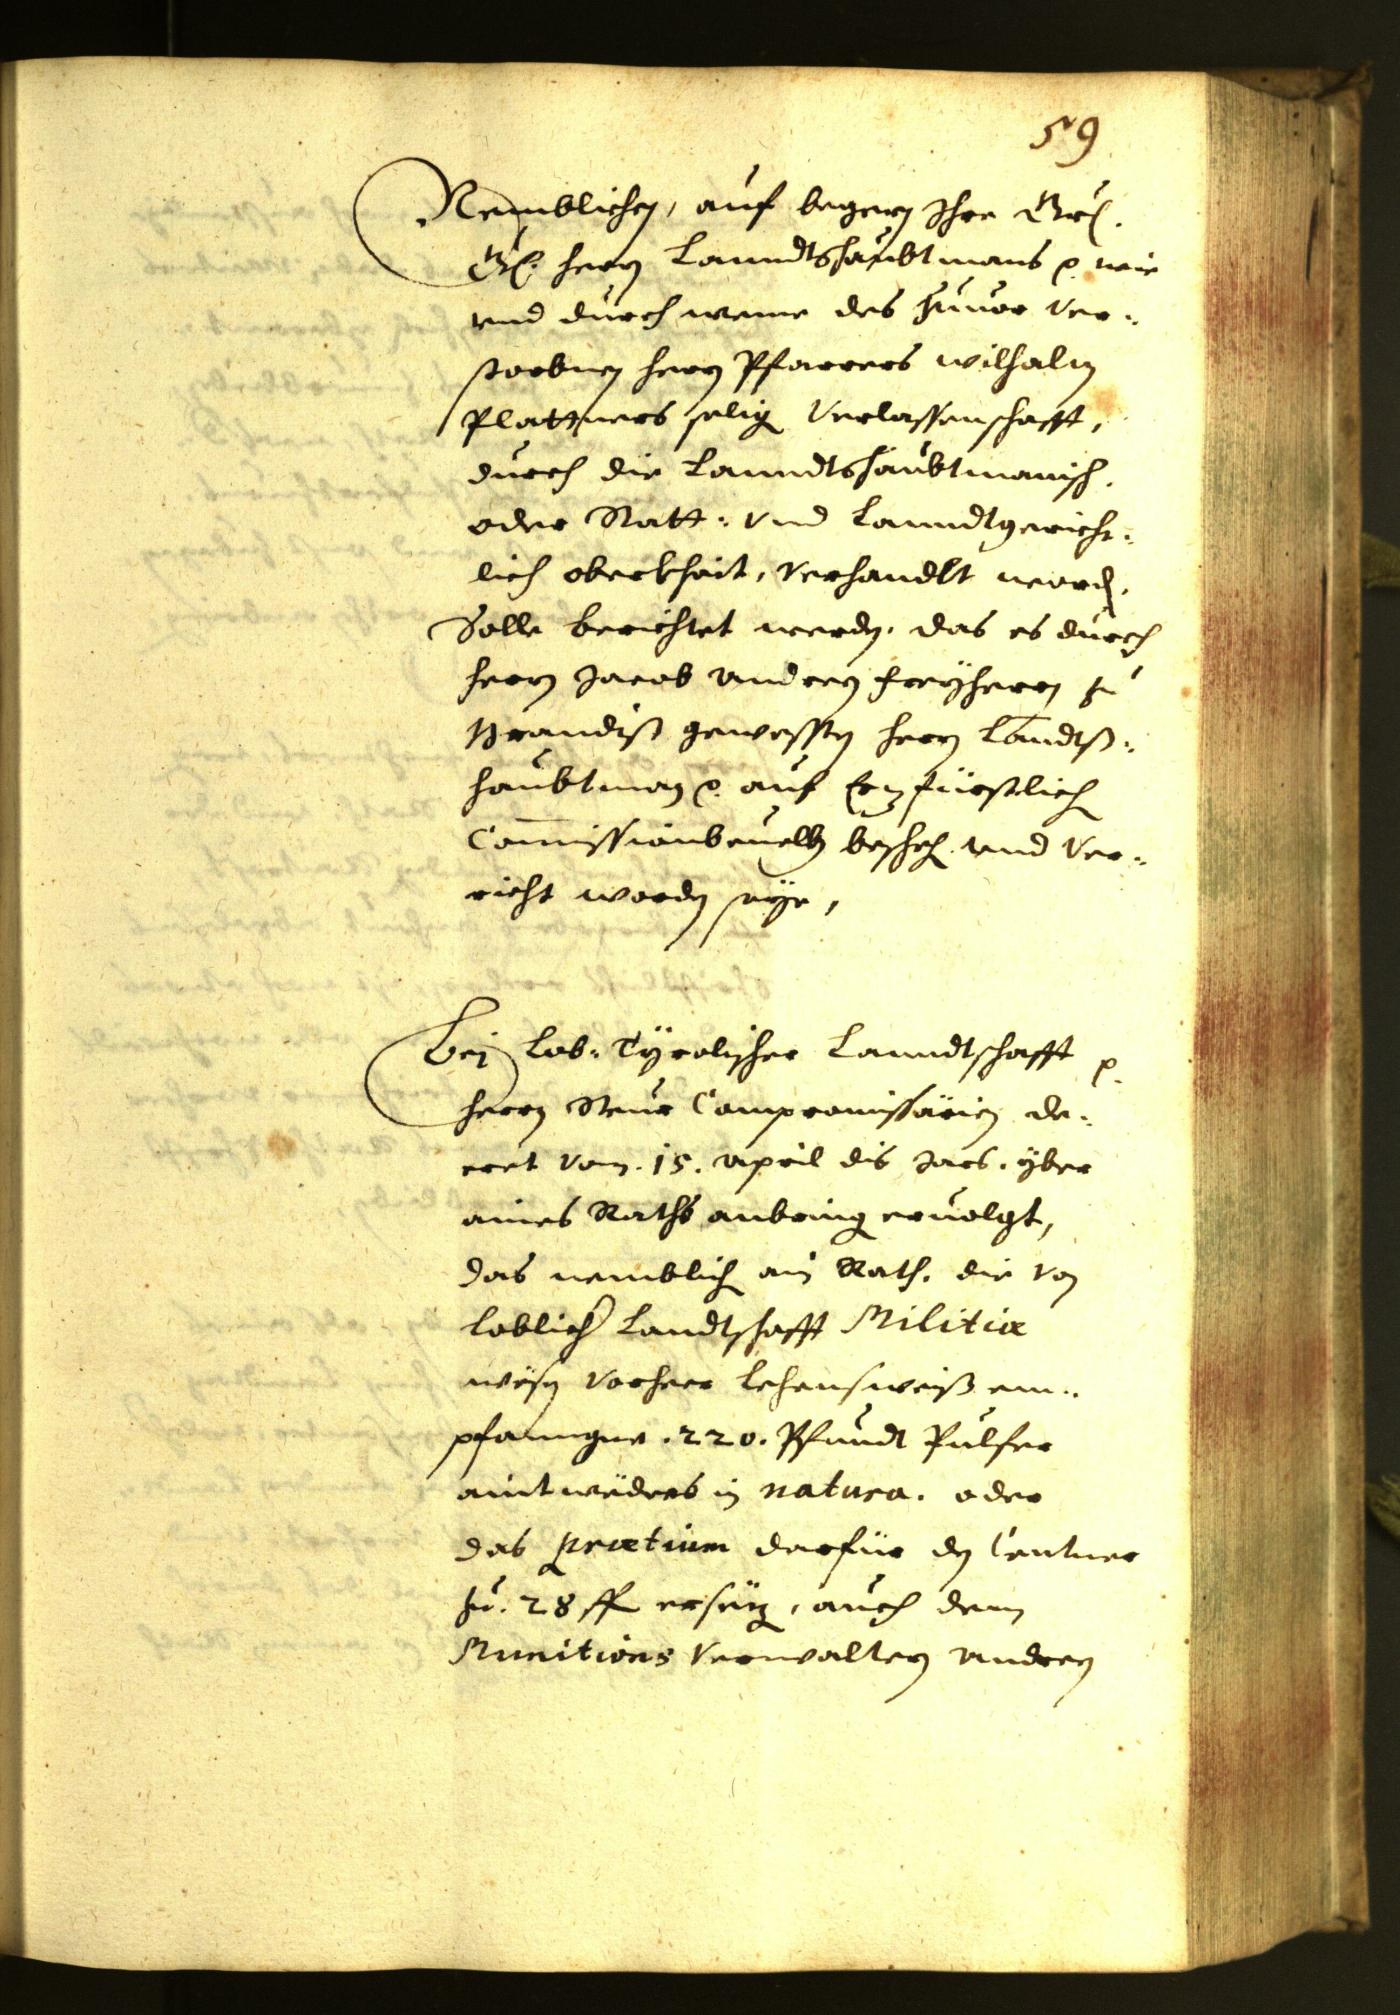 59
Nemblichen, auf begern Ihre Grl.
Gl. herrn Lanndtshaubtmans p. wie
vnd durch weme des zuuor Ver-
storbnen herrn Pfarrers wilhalm
Plattners selig Verlassenschafft,
durch die Lanndtshaubtmanisch.
oder Statt- vnd Lanndtgericht-
lich oberkhait, Verhandlt word.
Solle berichtet werdn, das es durch
herrn Jacob Andreen freyherrn zu
Brandiß gewessten herrn Landtß-
haubtman p. auf Erzfürstlich
Comissionbeuelh beschech. vnd Ver-
richt wordn seye,
Bei Lob. Tyrolischer Lanndtschafft p.
herrn Steur Compromissärien de-
cret Vom .15. April dis Jars. yber
aines Raths anbring eruolgt,
das nemblich ain Rath. die Von
loblicher Landtschafft Militiæ
wesn Vorher lehensweiß em-
pfanngne .220. Pfundt Pulfer
aintweders in natura. oder
das prætium darfür dn Centner
zu .28 ff ersetz, auch dem
Munitions Verwaltern Andreen